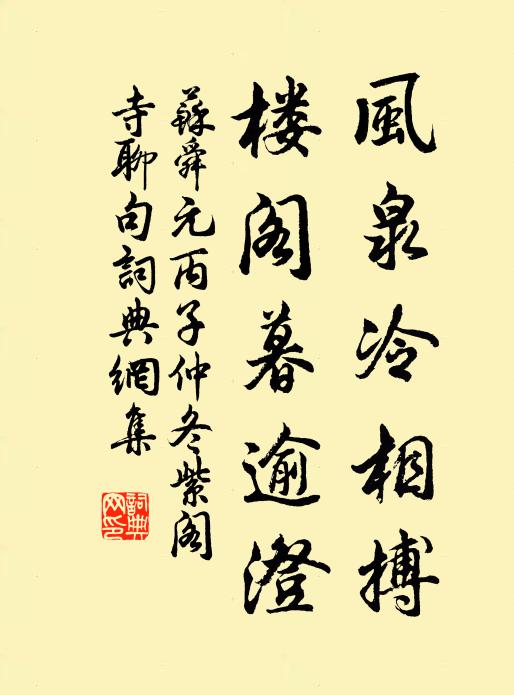 風泉冷相搏
楼阁暮逾澄
蘇舜元丙子仲冬紫阁
寺聊句詞典網集
詞典
网印